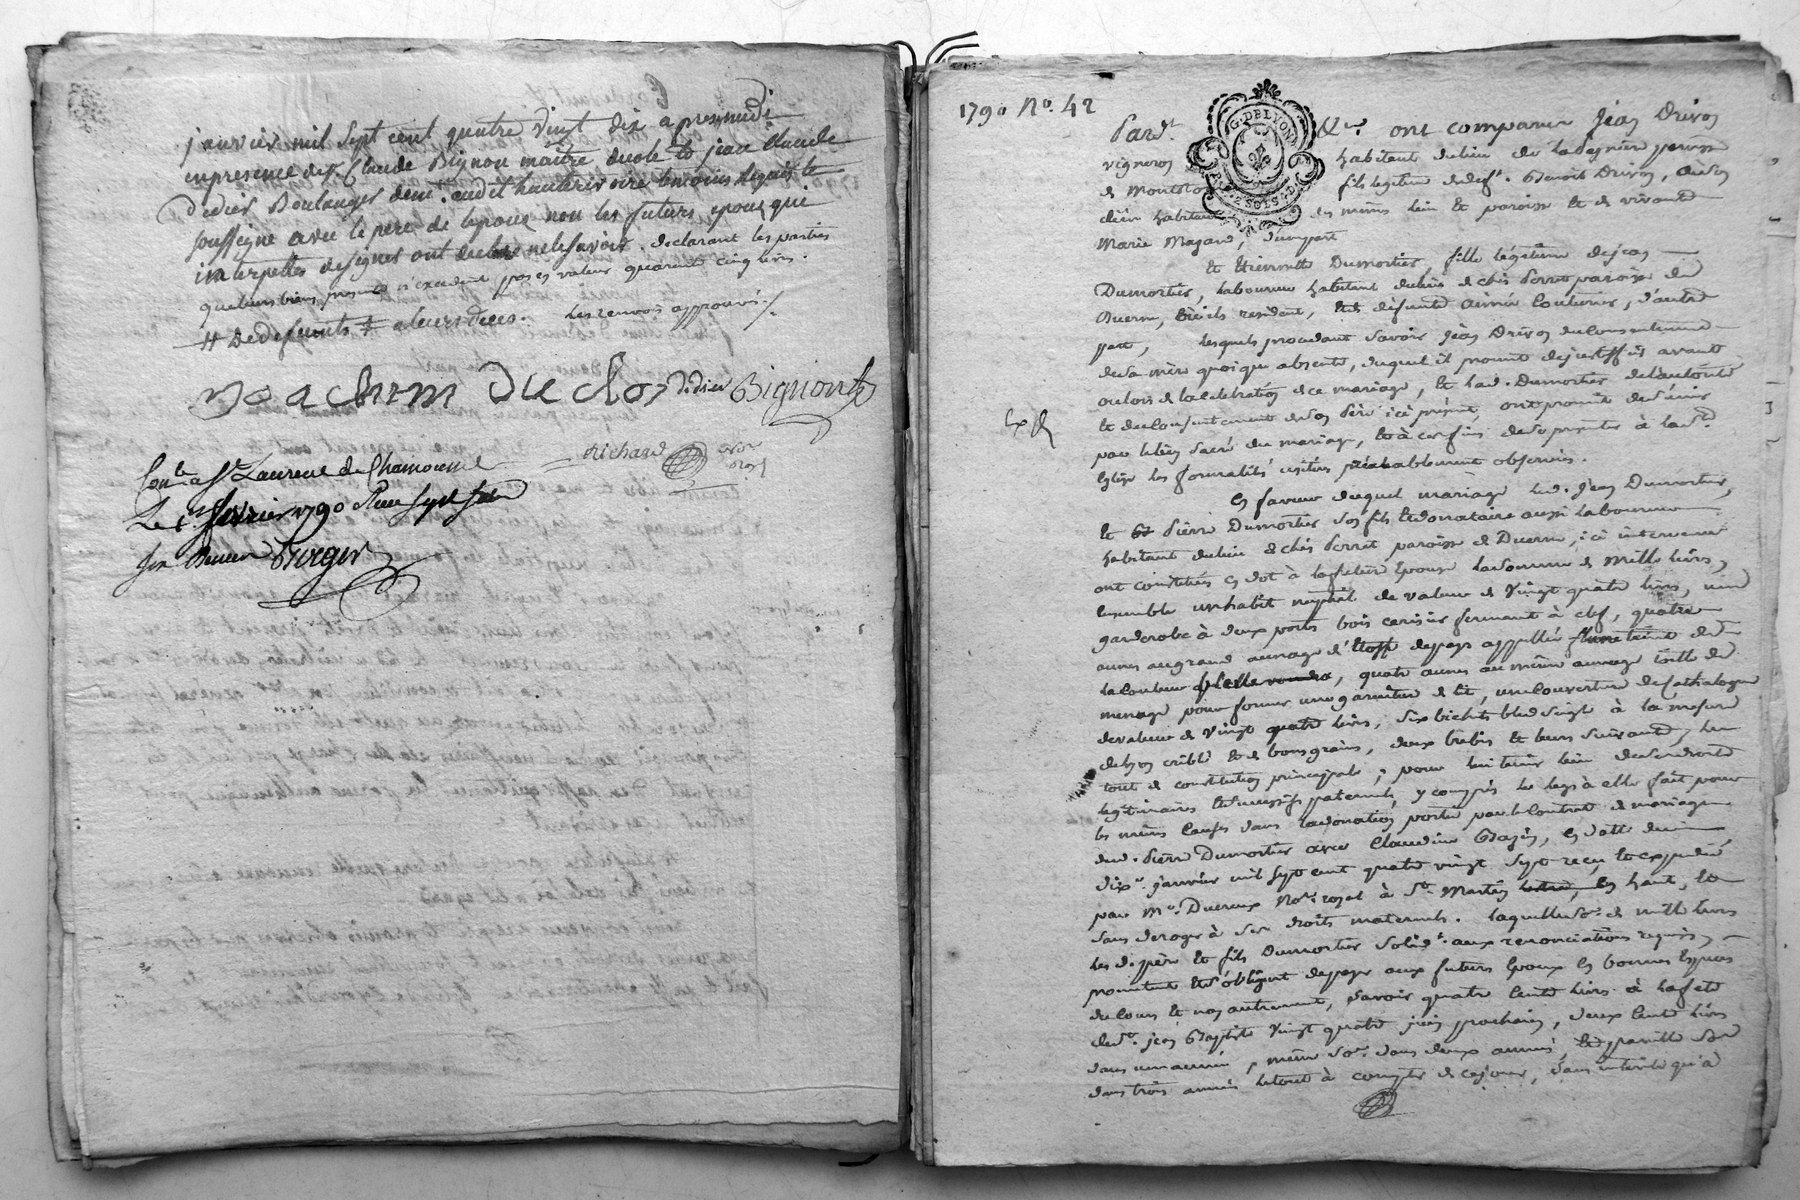 janvier mil sept cent quatre vingt dix apres midi
en presence de sr. Claude Bignon maitre decole et jean Claude
Didier Boulanger demt. audit hauterivoire temoins requis et
soussigne avec le pere de lepoux non les futurs epoux qui
interpellés de signer ont declaré ne le savoir. declarant les parties
que leurs biens presents n'excedent pas es valeur quarante cinq livres.
# De defunts # a leurs deces. les renvois approuvés /.
Joachim Duclos didier Bignon
Richard nore royal
Conlé a St. Laurent de Chamousset
Le fevrier 1790 Reçu sept
six deniers Berger
1790 No. 42
G. DE LYON
2 SOLS
Pardt. &c. ont comparu Jean Drivon
vigneron habitant du lieu de paroisse
de fils legitime de deft. Benoit Drivon,
habitant des mêmes lieu et paroisse et de vivante
Marie Magard, d'une part
Et Etiennette Dumortier fille légitime de jean
Dumortier, laboureur habitant du lieu de chés perret paroisse de
Duerne, où ils resident, et de défunte aimée Couturier, d'autre
part, lesquels procedant savoir Jean Drivon du consentement
de sa mère quoique absente, duquel il promet de justiffier avant
ou lors de la celebration de ce mariage, et lad. Dumortier de l'autorité
et du consentement de son père ici présent, ont promis de s'unir
par le lien sacré du mariage, et à ces fins de se presenter à la Ste.
Eglise les formalités usitées préalablement observées.
En faveur duquel mariage led. Jean Dumortier,
et St Pierre Dumortier son fils et donataire aussi laboureur
habitant du lieu de chés perret paroisse de Duerne, ici intervenus
ont constitués en dot à la future épouse la somme de mille livres,
ensemble un habit nuptial de valeur de vingt quatre livres, une
garderobe à deux portes bois cerisier fermant à clef, quatre
aunes au grand aunage d'étoffe de pays appellée de
la couleur, quatre aunes au même aunage toille de
menage pour former une garniture de lit, une couverture de Cathalogne
de valeur de vingt quatre livres, six bichets bled seigle à la mesure
de lyon criblé et de bons grains, deux brebis et leurs suivants, le
tout de constitution principale; pour lui tenir lieu de ses droits
legitimaires et successifs paternels, y compris le legs à elle fait pour
les mêmes causes dans la donation portée par le Contrat de mariage
dud. Pierre Dumortier avec Claudine Bazin, en datte du
dixe. janvier mil sept cent quatre vingt sept reçu et expedié
par Me. Ducreux Nore. royal à St. Martin en haut, et
sans deroger à ses droits maternels. laquelle se. de mille livres
les d. père et fils Dumortier solidt. aux renonciations requises,
promettent et s'obligent de payer aux futurs époux en bonnes Espèces
de cours et non autrement, savoir quatre cents livres à la fete
de St. jean Baptiste vingt quatre juin prochain, deux cents livres
dans une année, même se. dans deux années, et pareille se.
dans trois années le tout à compter de ce jour, sans interêt qu'à